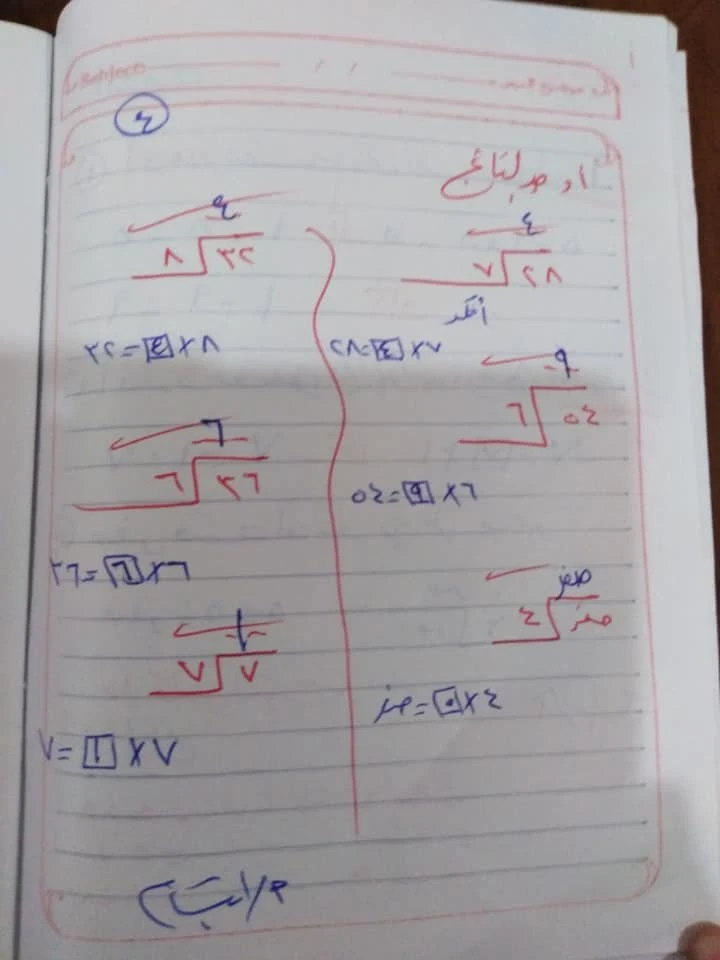 ٤
أوجد الناتج
٤
٢٨ ٧
أفكر
٧ × ٤ = ٢٨
٩
٥٤ ٦
٦ × ٩ = ٥٤
صفر
صفر ٤
٤ × ٠ = صفر
٤
٣٢ ٨
٨ × ٤ = ٣٢
٦
٣٦ ٦
٦ × ٦ = ٣٦
١
٧ ٧
٧ × ١ = ٧